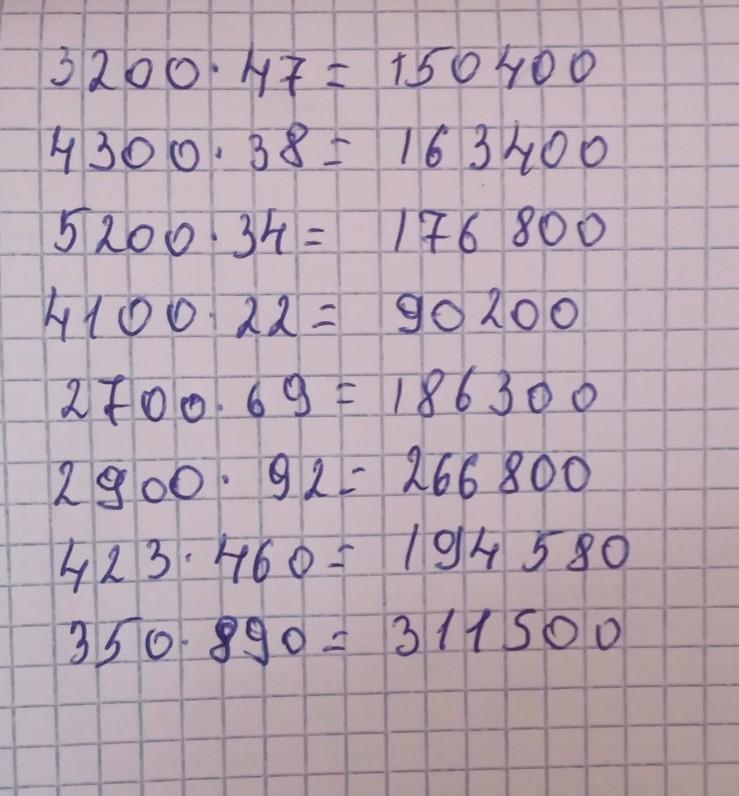 3200 · 47 = 150400
4300 · 38 = 163400
5200 · 34 = 176 800
4100 · 22 = 90200
2700 · 69 = 186300
2900 · 92 = 266800
423 · 460 = 194 580
350 · 890 = 311500